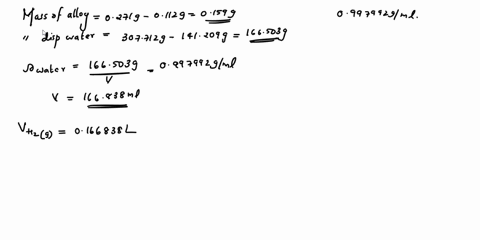 Mass of alloy = 0.271g - 0.112g = 0.159g
0.997992g/ml.
" disp water = 307.712g - 141.209g = 166.503g
ρwater = 166.503g / V = 0.997992g/ml
V = 166.838ml
VH2(g) = 0.166838L